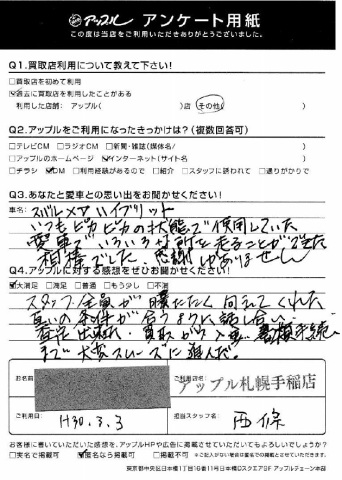 アップル アンケート用紙
この度は当店をご利用いただきありがとうございました。
Q1.買取店利用について教えて下さい!
□買取店を初めて利用
☑過去に買取店を利用したことがある
利用した店舗: アップル( )店 その他( )
Q2.アップルをご利用になったきっかけは?(複数回答可)
□テレビCM □ラジオCM □新聞・雑誌(媒体名/ )
□アップルのホームページ ☑インターネット(サイト名 )
□チラシ ☑DM □利用経験があるので □紹介 □スタッフに誘われて □通りがかりで
Q3.あなたと愛車との思い出をお聞かせください!
車名: スバル ハイブリット
いつもピカピカの状態で使用していた
愛車でいろいろな所を走ることができた
相棒でした。感謝
Q4.アップルに対する感想をぜひお聞かせください!
☑大満足 □満足 □普通 □もう少し □不満
スタッフ全員が暖たたく向えてくれた
互いの条件が合うように話し合い
出来た. 買取から入金. 手続
まで大変スムーズに進んだ。
お名前
ご利用店名:
アップル札幌手稲店
ご利用日: H30.3.3
担当スタッフ名: 西條
お客様に書いていただいた感想を、アップルHPや広告に掲載させていただいてもよろしいでしょうか?
□実名で掲載可 ☑匿名なら掲載可 □掲載不可 ※ご記入がない場合は匿名で掲載させていただきます。
東京都中央区日本橋1丁目16番11号日本橋DスクエアBF アップルチェーン本部